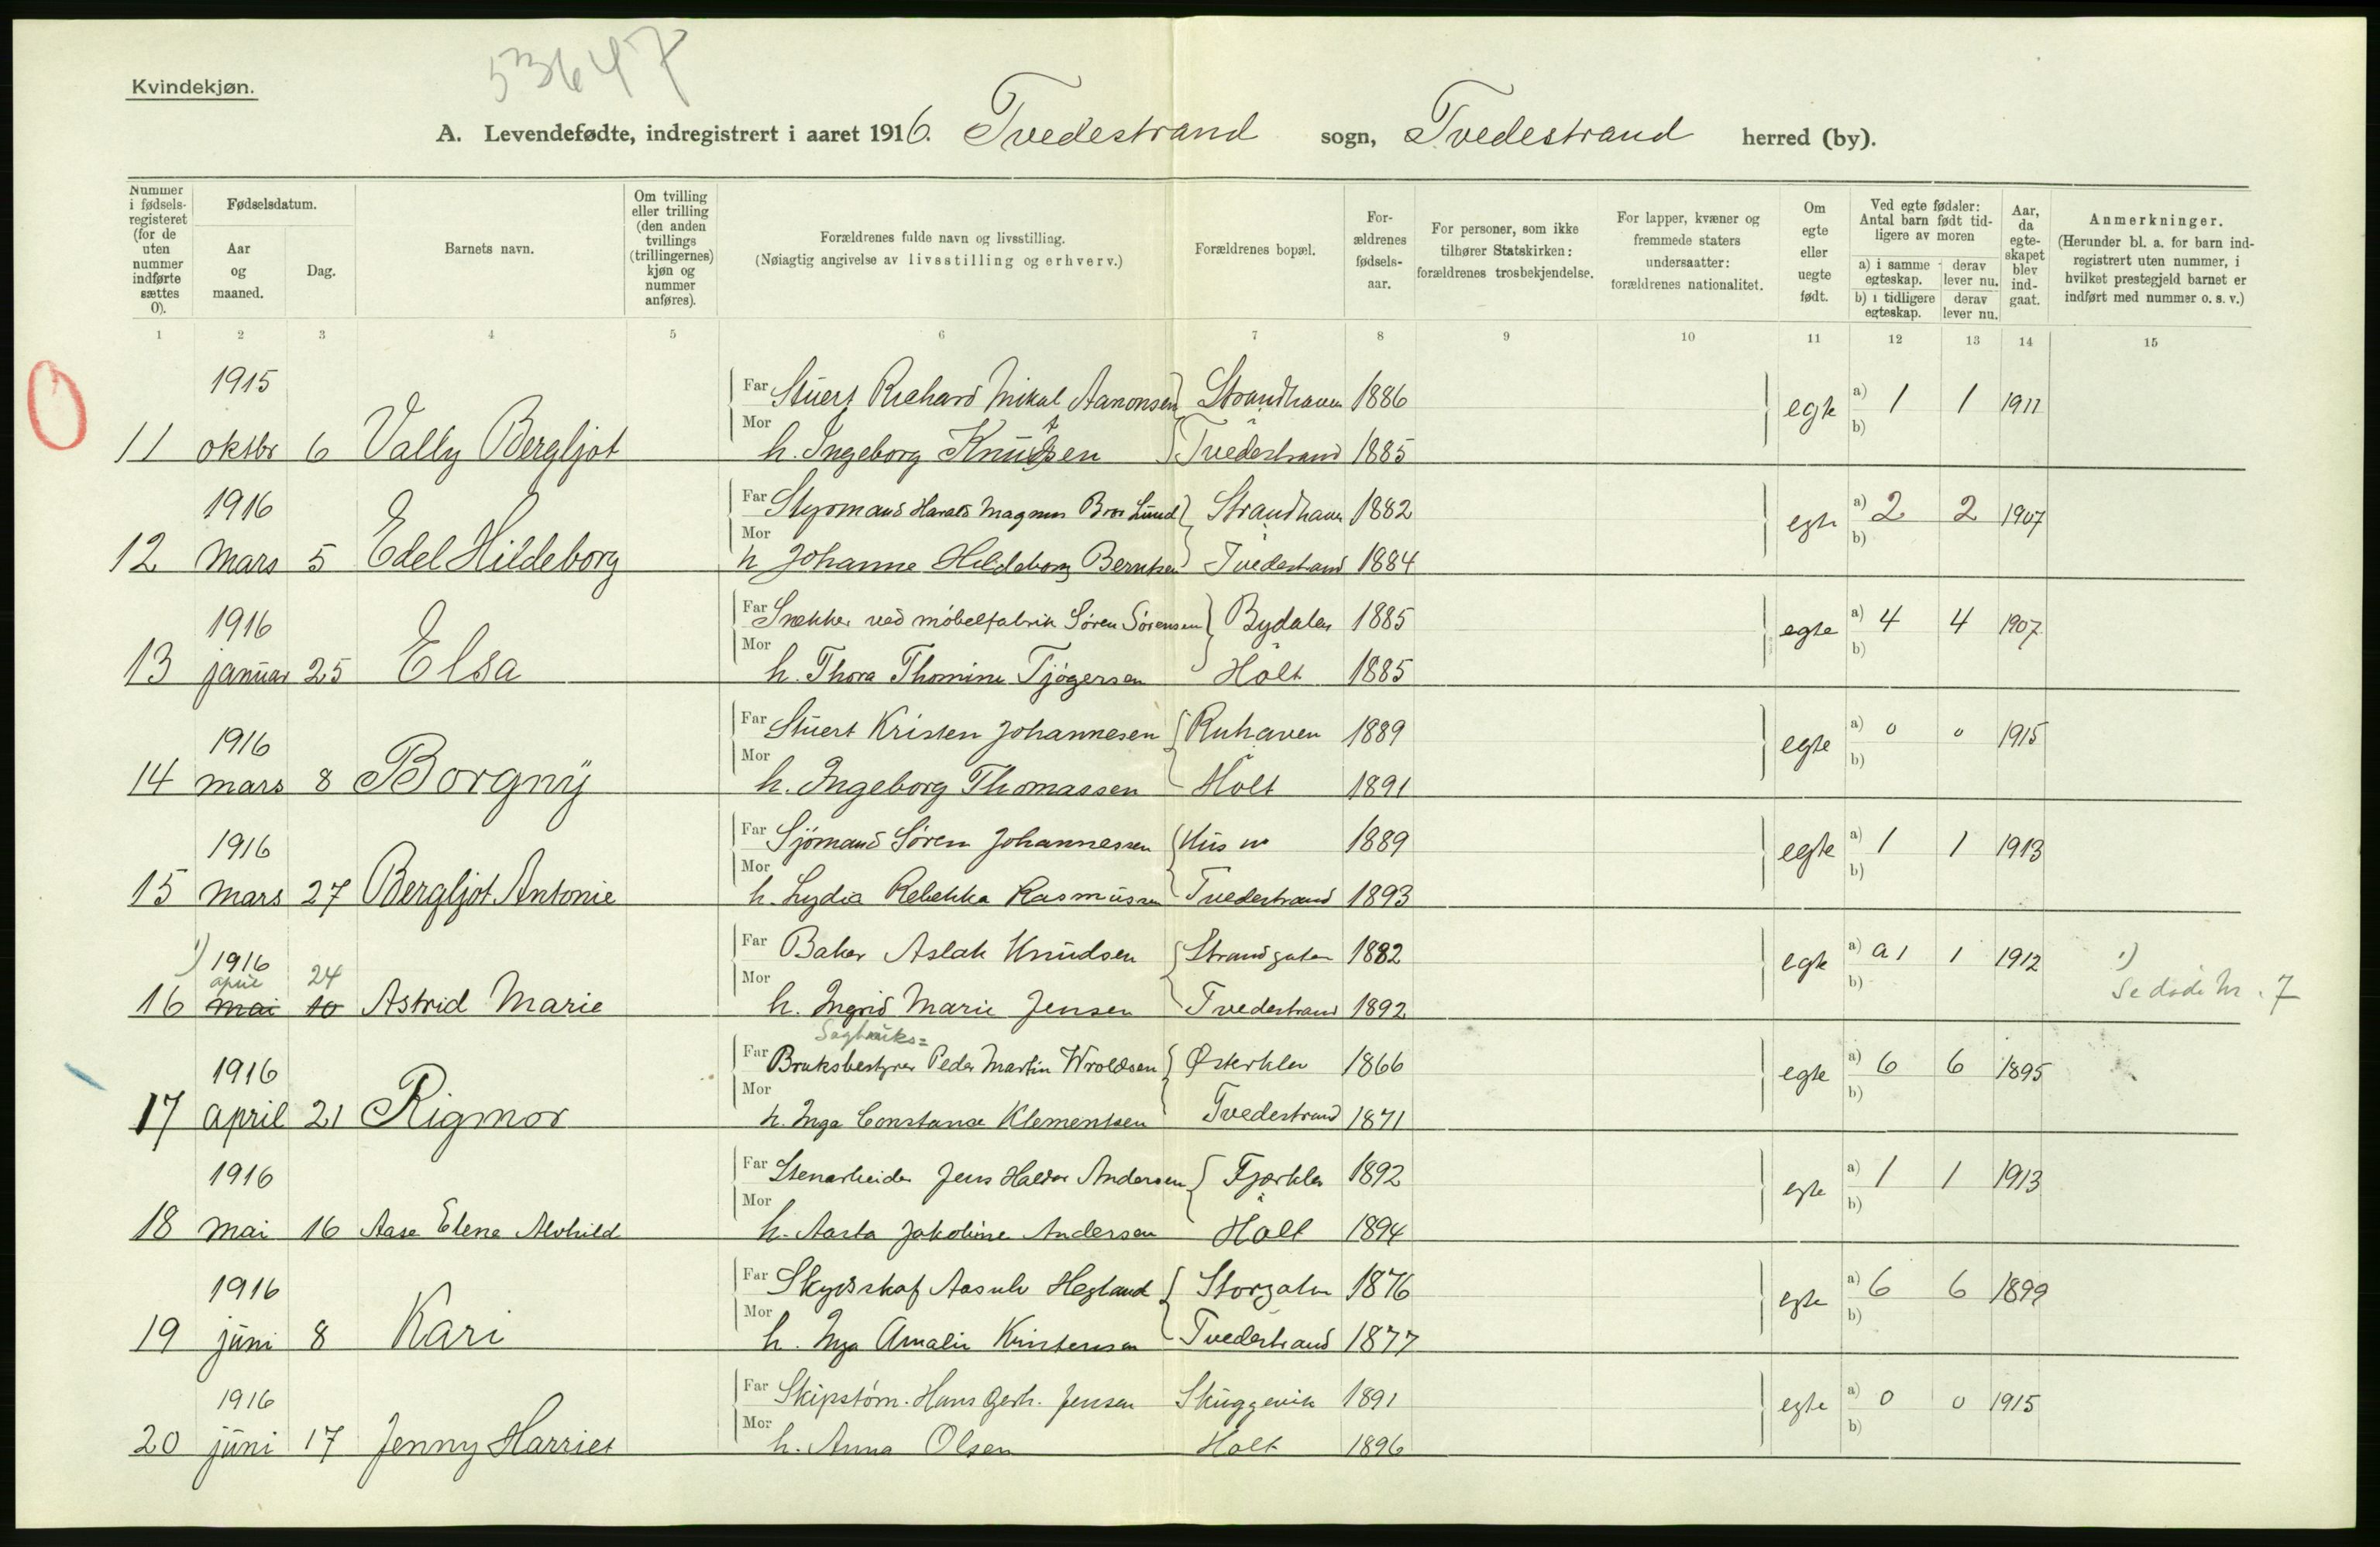 53647
Kvindekjøn.
A. Levendefødte, indregistrert i aaret 1916. Tvedestrand sogn, Tvedestrand herred (by).
Nummer i fødselsregisteret (for de uten nummer indførte sættes 0).
Fødselsdatum.
Aar og maaned.
Dag.
Barnets navn.
Om tvilling eller trilling (den anden tvillings (trillingernes) kjøn og nummer anføres).
Forældrenes fulde navn og livsstilling.
(Nøiagtig angivelse av livsstilling og erhverv.)
Forældrenes bopæl.
For-ældrenes fødsels-aar.
For personer, som ikke tilhører Statskirken: forældrenes trosbekjendelse.
For lapper, kvæner og fremmede staters undersaatter: forældrenes nationalitet.
Om egte eller uegte født.
Ved egte fødsler: Antal barn født tid-ligere av moren
a) i samme egteskap.
derav lever nu.
b) i tidligere egteskap.
derav lever nu.
Aar, da egte-skapet blev ind-gaat.
Anmerkninger.
(Herunder bl. a. for barn ind-registrert uten nummer, i hvilket prestegjeld barnet er indført med nummer o. s. v.)
1 2 3 4 5 6 7 8 9 10 11 12 13 14 15
0
1915 Far Stuert Richard Mikal Aanonsen Strandhaven 1886 egte a) 1 1 1911
11 oktbr 6 Vally Bergljot Mor h. Ingeborg Knutsen Tvedestrand 1885 b)
1916 Far Styrmand Harald Magnus Bror Lund Strandhaven 1882 egte a) 2 2 1907
12 mars 5 Edel Hildeborg Mor h Johanne Hildeborg Berntsen Tvedestrand 1884 b)
1916 Far Snekker ved møbelfabrik Søren Sørensen Bydalen 1885 egte a) 4 4 1907
13 januar 25 Elsa Mor h. Thora Thomine Tjøgersen Holt 1885 b)
1916 Far Stuert Kristen Johannesen Ruhaven 1889 egte a) 0 0 1915
14 mars 8 Borgny Mor h. Ingeborg Thomassen Holt 1891 b)
1916 Far Sjømand Søren Johannessen 1889 egte a) 1 1 1913
15 mars 27 Bergljot Antonie Mor h. Lydia Rebekka Rasmussen Tvedestrand 1893 b)
1) 1916 Far Baker Aslak Knudsen Strandgaten 1882 egte a) a 1 1 1912 1)
april 24
16 mai 10 Astrid Marie Mor h. Ingrid Marie Jensen Tvedestrand 1892 b) Se døde nr. 7
Sagbruks=
1916 Far Bruksbestyrer Peder Martin Wroldsen Østerklev 1866 egte a) 6 6 1895
17 april 21 Rigmor Mor h. Inga Constanse Klementsen Tvedestrand 1871 b)
1916 Far Stenarbeider Jens Halvor Andersen Fjærklev 1892 egte a) 1 1 1913
18 mai 16 Aase Elene Alvhild Mor h. Aasta Jakobine Andersen Holt 1894 b)
1916 Far Skydsskaf. Aasulv Hegland Storgaten 1876 egte a) 6 6 1899
19 juni 8 Kari Mor h. Inga Amalie Kristensen Tvedestrand 1877 b)
1916 Far Skipstøm. Hans Gerh. Jensen Skuggevik 1891 egte a) 0 0 1915
20 juni 17 Jenny Harriet Mor h. Anna Olsen Holt 1896 b)